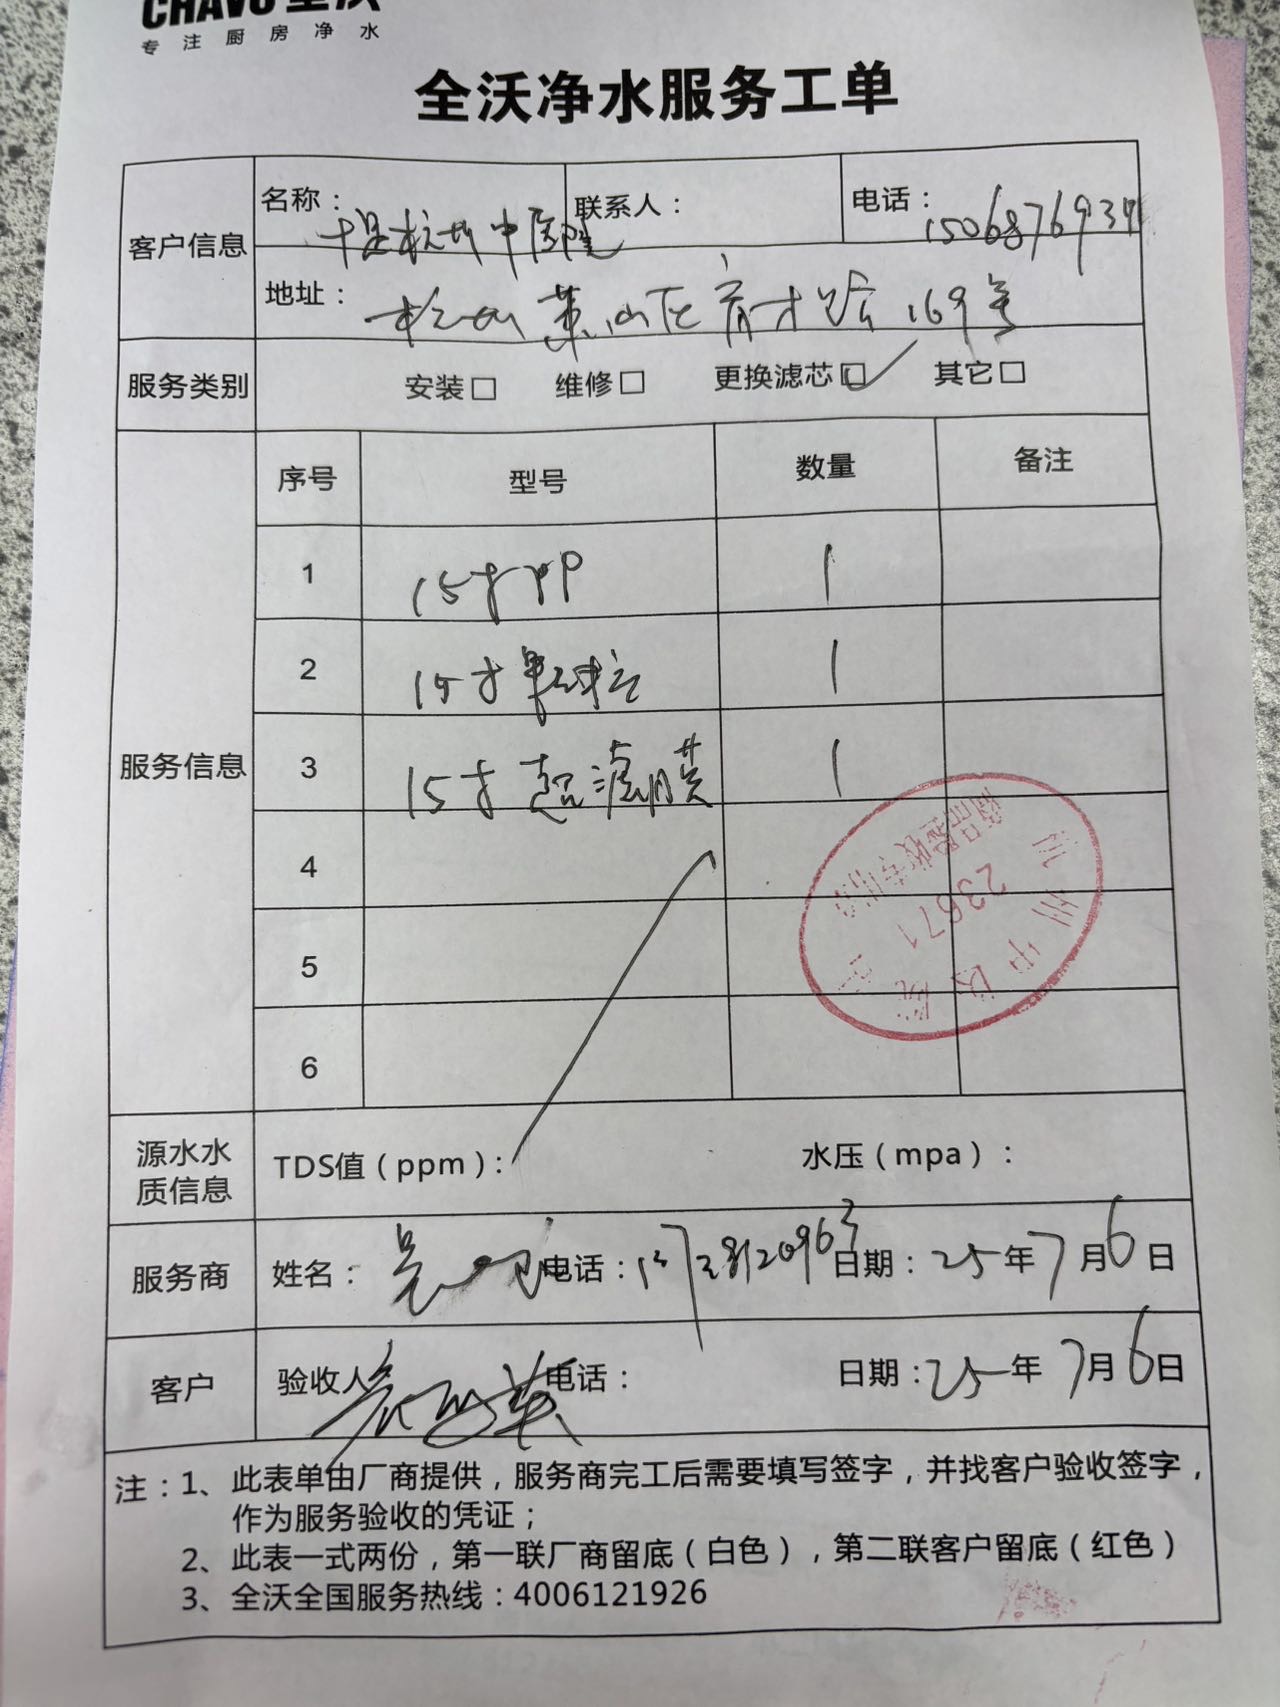 专注厨房净水
全沃净水服务工单
客户信息
名称：
中医院
联系人：
电话：
地址： 萧山区育才路169号
服务类别 安装□ 维修□ 更换滤芯□✓ 其它□
服务信息
序号 型号 数量 备注
1 15寸PP 1
2 15寸 1
3 15寸超滤膜 1
4
5
6
23671
源水水质信息 TDS值（ppm）： 水压（mpa）：
服务商 姓名： 电话： 日期：25年7月6日
客户 验收人 电话： 日期：25年7月6日
注：1、此表单由厂商提供，服务商完工后需要填写签字，并找客户验收签字，
作为服务验收的凭证；
2、此表一式两份，第一联厂商留底（白色），第二联客户留底（红色）
3、全沃全国服务热线：4006121926